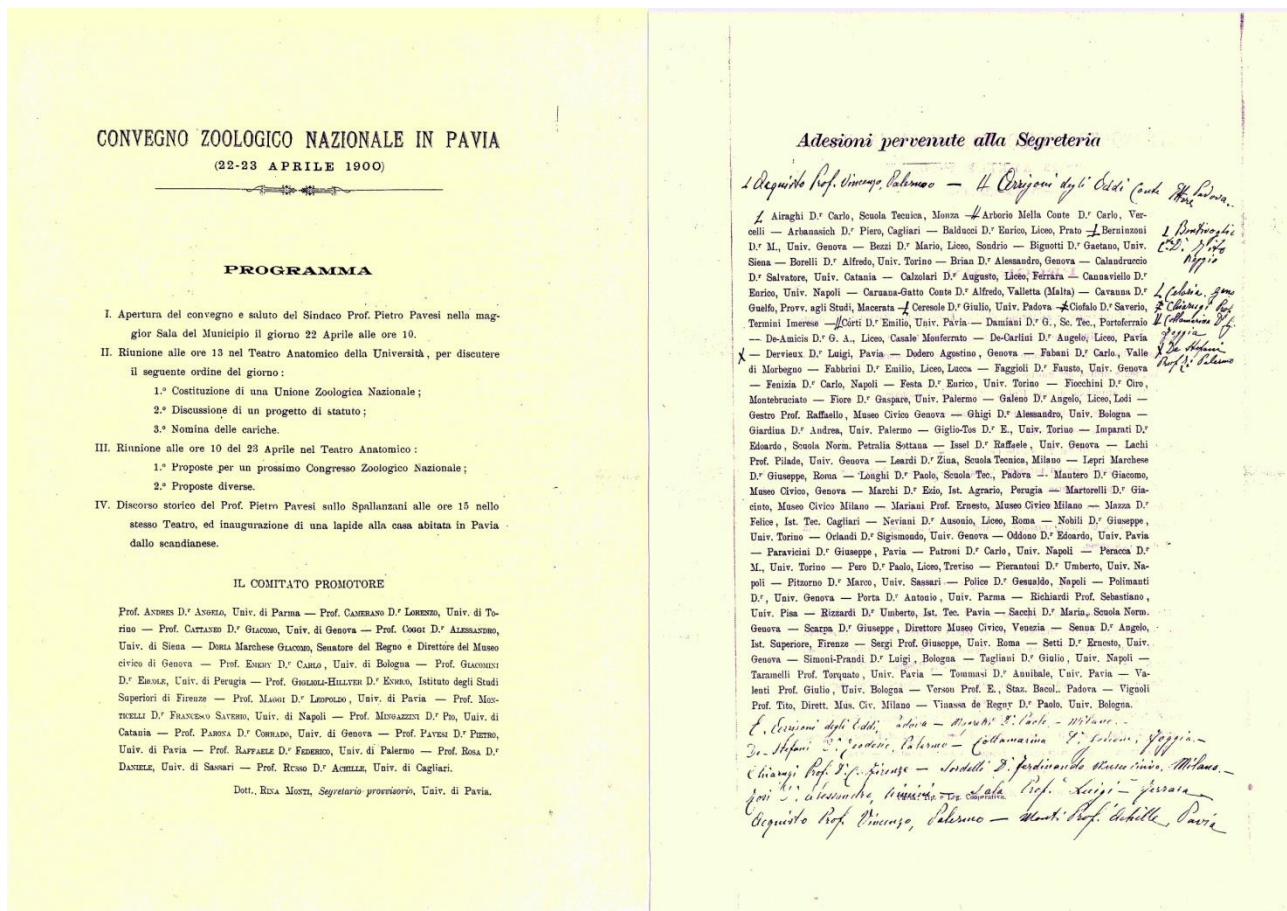 CONVEGNO ZOOLOGICO NAZIONALE IN PAVIA
(22-23 APRILE 1900)
PROGRAMMA
I. Apertura del convegno e saluto del Sindaco Prof. Pietro Pavesi nella mag-
gior Sala del Municipio il giorno 22 Aprile alle ore 10.
II. Riunione alle ore 13 nel Teatro Anatomico della Università, per discutere
il seguente ordine del giorno:
1.º Costituzione di una Unione Zoologica Nazionale;
2.º Discussione di un progetto di statuto;
3.º Nomina delle cariche.
III. Riunione alle ore 10 del 23 Aprile nel Teatro Anatomico:
1.º Proposte per un prossimo Congresso Zoologico Nazionale;
2.º Proposte diverse.
IV. Discorso storico del Prof. Pietro Pavesi sullo Spallanzani alle ore 15 nello
stesso Teatro, ed inaugurazione di una lapide alla casa abitata in Pavia
dallo scandianese.
IL COMITATO PROMOTORE
Prof. ANDRES D.r ANGELO, Univ. di Parma — Prof. CAMERANO D.r LORENZO, Univ. di To-
rino — Prof. CATTANEO D.r GIACOMO, Univ. di Genova — Prof. COGGI D.r ALESSANDRO,
Univ. di Siena — DORIA Marchese GIACOMO, Senatore del Regno e Direttore del Museo
civico di Genova — Prof. EMERY D.r CARLO, Univ. di Bologna — Prof. GIACOMINI
D.r ERCOLE, Univ. di Perugia — Prof. GIGLIOLI-HILLYER D.r ENRICO, Istituto degli Studi
Superiori di Firenze — Prof. MAGGI D.r LEOPOLDO, Univ. di Pavia — Prof. MON-
TICELLI D.r FRANCESCO SAVERIO, Univ. di Napoli — Prof. MINGAZZINI D.r PIO, Univ. di
Catania — Prof. PARONA D.r CORRADO, Univ. di Genova — Prof. PAVESI D.r PIETRO,
Univ. di Pavia — Prof. RAFFAELE D.r FEDERICO, Univ. di Palermo — Prof. ROSA D.r
DANIELE, Univ. di Sassari — Prof. RUSSO D.r ACHILLE, Univ. di Cagliari.
Dott. RINA MONTI, Segretario provvisorio, Univ. di Pavia.
Adesioni pervenute alla Segreteria
Acquisto Prof. Vincenzo, Palermo — Arrigoni degli Oddi Conte Ettore Padova.
Airaghi D.r Carlo, Scuola Tecnica, Monza — Arborio Mella Conte D.r Carlo, Ver-
celli — Arbanasich D.r Piero, Cagliari — Balducci D.r Enrico, Liceo, Prato — Berninzoni
D.r M., Univ. Genova — Bezzi D.r Mario, Liceo, Sondrio — Bignotti D.r Gaetano, Univ.
Siena — Borelli D.r Alfredo, Univ. Torino — Brian D.r Alessandro, Genova — Calandruccio
D.r Salvatore, Univ. Catania — Calzolari D.r Augusto, Liceo, Ferrara — Cannaviello D.r
Enrico, Univ. Napoli — Caruana-Gatto Conte D.r Alfredo, Valletta (Malta) — Cavanna D.r
Guelfo, Provv. agli Studi, Macerata — Ceresole D.r Giulio, Univ. Padova — Ciofalo D.r Saverio,
Termini Imerese — Corti D.r Emilio, Univ. Pavia — Damiani D.r G., Sc. Tec., Portoferraio
— De-Amicis D.r G. A., Liceo, Casale Monferrato — De-Carlini D.r Angelo, Liceo, Pavia
— Dervieux D.r Luigi, Pavia — Dodero Agostino, Genova — Fabani D.r Carlo, Valle
di Morbegno — Fabbrini D.r Emilio, Liceo, Lucca — Faggioli D.r Fausto, Univ. Genova
— Fenizia D.r Carlo, Napoli — Festa D.r Enrico, Univ. Torino — Fiocchini D.r Ciro,
Montebruciato — Fiore D.r Gaspare, Univ. Palermo — Galeno D.r Angelo, Liceo, Lodi —
Gestro Prof. Raffaello, Museo Civico Genova — Ghigi D.r Alessandro, Univ. Bologna —
Giardina D.r Andrea, Univ. Palermo — Giglio-Tos D.r E., Univ. Torino — Imparati D.r
Edoardo, Scuola Norm. Petralia Sottana — Issel D.r Raffaele, Univ. Genova — Lachi
Prof. Pilade, Univ. Genova — Leardi D.r Zina, Scuola Tecnica, Milano — Lepri Marchese
D.r Giuseppe, Roma — Longhi D.r Paolo, Scuola Tec., Padova — Mantero D.r Giacomo,
Museo Civico, Genova — Marchi D.r Ezio, Ist. Agrario, Perugia — Martorelli D.r Gia-
cinto, Museo Civico Milano — Mariani Prof. Ernesto, Museo Civico Milano — Mazza D.r
Felice, Ist. Tec. Cagliari — Neviani D.r Ausonio, Liceo, Roma — Nobili D.r Giuseppe,
Univ. Torino — Orlandi D.r Sigismondo, Univ. Genova — Oddono D.r Edoardo, Univ. Pavia
— Paravicini D.r Giuseppe, Pavia — Patroni D.r Carlo, Univ. Napoli — Peracca D.r
M., Univ. Torino — Pero D.r Paolo, Liceo, Treviso — Pierantoni D.r Umberto, Univ. Na-
poli — Pitzorno D.r Marco, Univ. Sassari — Police D.r Gesualdo, Napoli — Polimanti
D.r, Univ. Genova — Porta D.r Antonio, Univ. Parma — Richiardi Prof. Sebastiano,
Univ. Pisa — Rizzardi D.r Umberto, Ist. Tec. Pavia — Sacchi D.r Maria, Scuola Norm.
Genova — Scarpa D.r Giuseppe, Direttore Museo Civico, Venezia — Senna D.r Angelo,
Ist. Superiore, Firenze — Sergi Prof. Giuseppe, Univ. Roma — Setti D.r Ernesto, Univ.
Genova — Simoni-Prandi D.r Luigi, Bologna — Tagliani D.r Giulio, Univ. Napoli —
Taramelli Prof. Torquato, Univ. Pavia — Tommasi D.r Annibale, Univ. Pavia — Va-
lenti Prof. Giulio, Univ. Bologna — Verson Prof. E., Staz. Bacol., Padova — Vignoli
Prof. Tito, Dirett. Mus. Civ. Milano — Vinassa de Regny D.r Paolo, Univ. Bologna.
Bentivoglio
Chiarugi Prof.
Cottamarina
Foggia
De Stefani
Prof. Palermo
degli Oddi, Padova — Magretti D. Paolo — Milano —
De-Stefani Palermo — Cottamarina Foggia —
Chiarugi Prof. Firenze — Sordelli D. Ferdinando Museo civico, Milano —
Alessandro, Rimini — Sala Prof. Luigi — Ferrara
Acquisto Prof. Vincenzo, Palermo — Monti Prof. Achille, Pavia